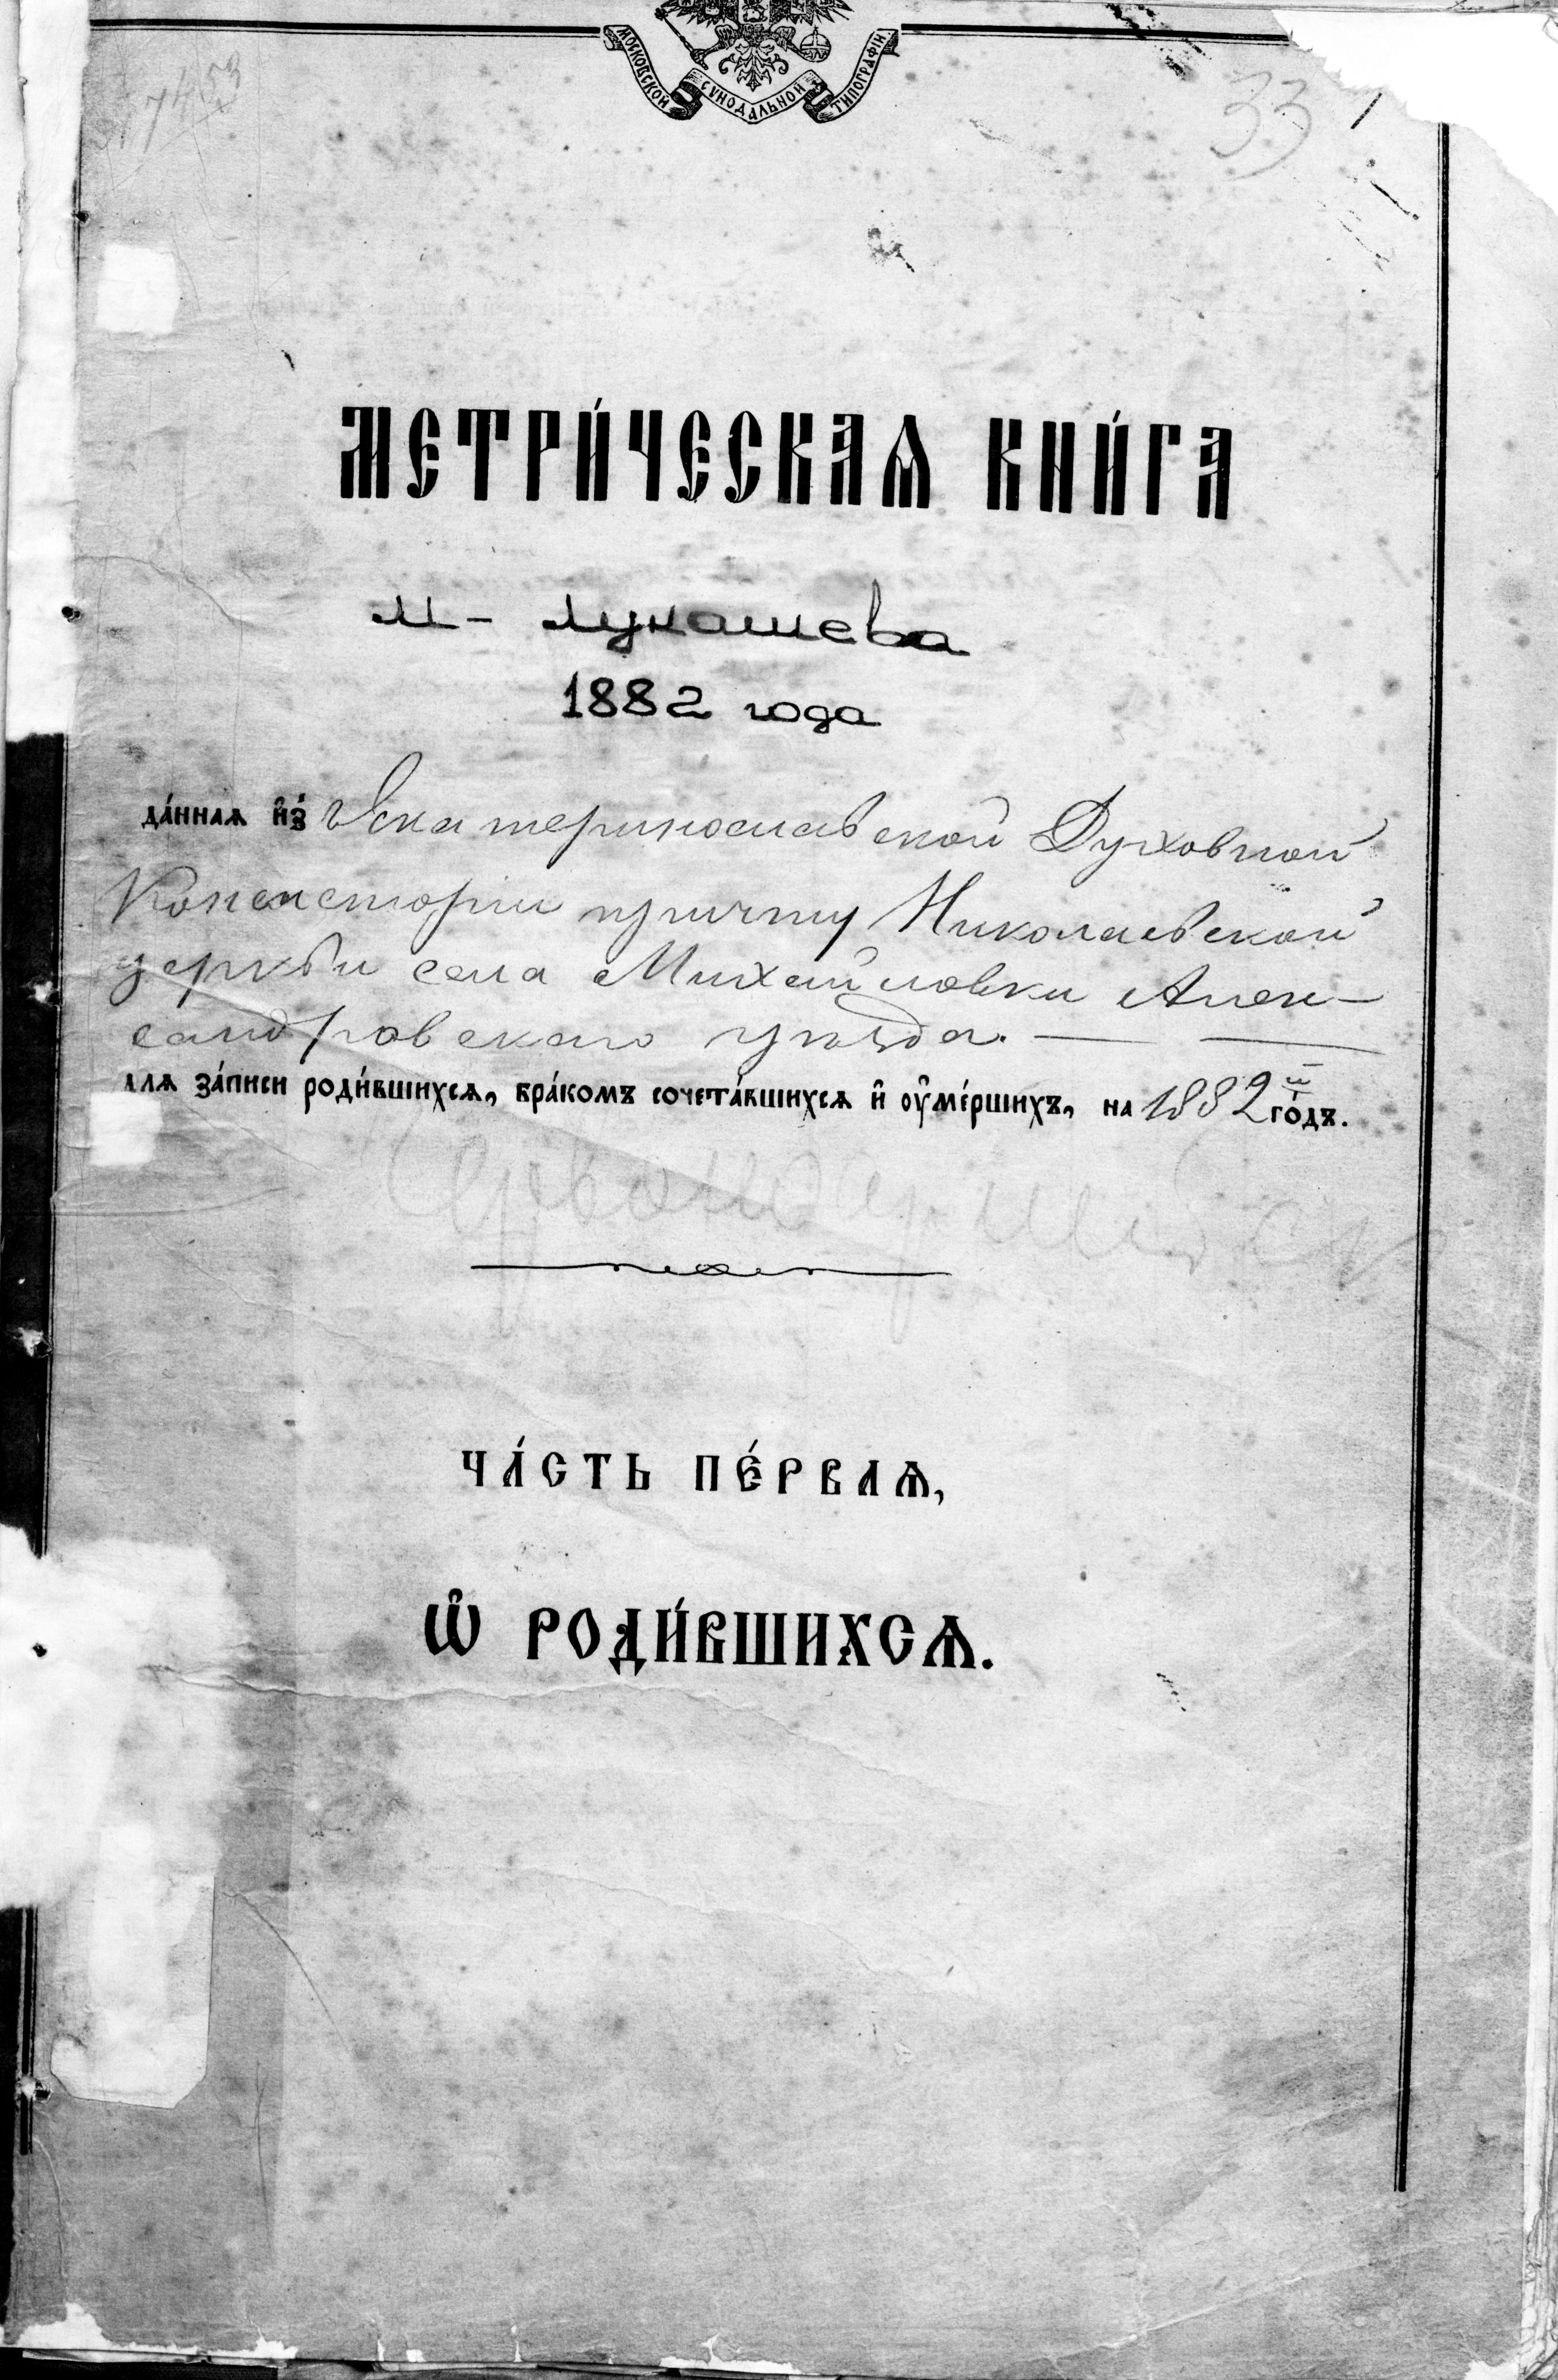 МОСКОВСКОЙ СѴНОДАЛЬНОЙ ТИПОГРАФІИ
7453
33
МЕТРИ́ЧЕСКАѦ КНИ́ГА
М- Лукашева
1882 года
да́ннаѧ и҆з̾ Екатеринославской Духовной
Консисторіи причту Николаевской
церкви села Михайловки Алек-
сандровскаго уѣзда.
длѧ за́писи роди́вшихсѧ, бра́комъ сочета́вшихсѧ и҆ ᲂу҆ме́ршихъ, на 1882й го́дъ.
ЧА́СТЬ ПЕ́РВАѦ,
Ѡ҆ РОДИ́ВШИХСѦ.